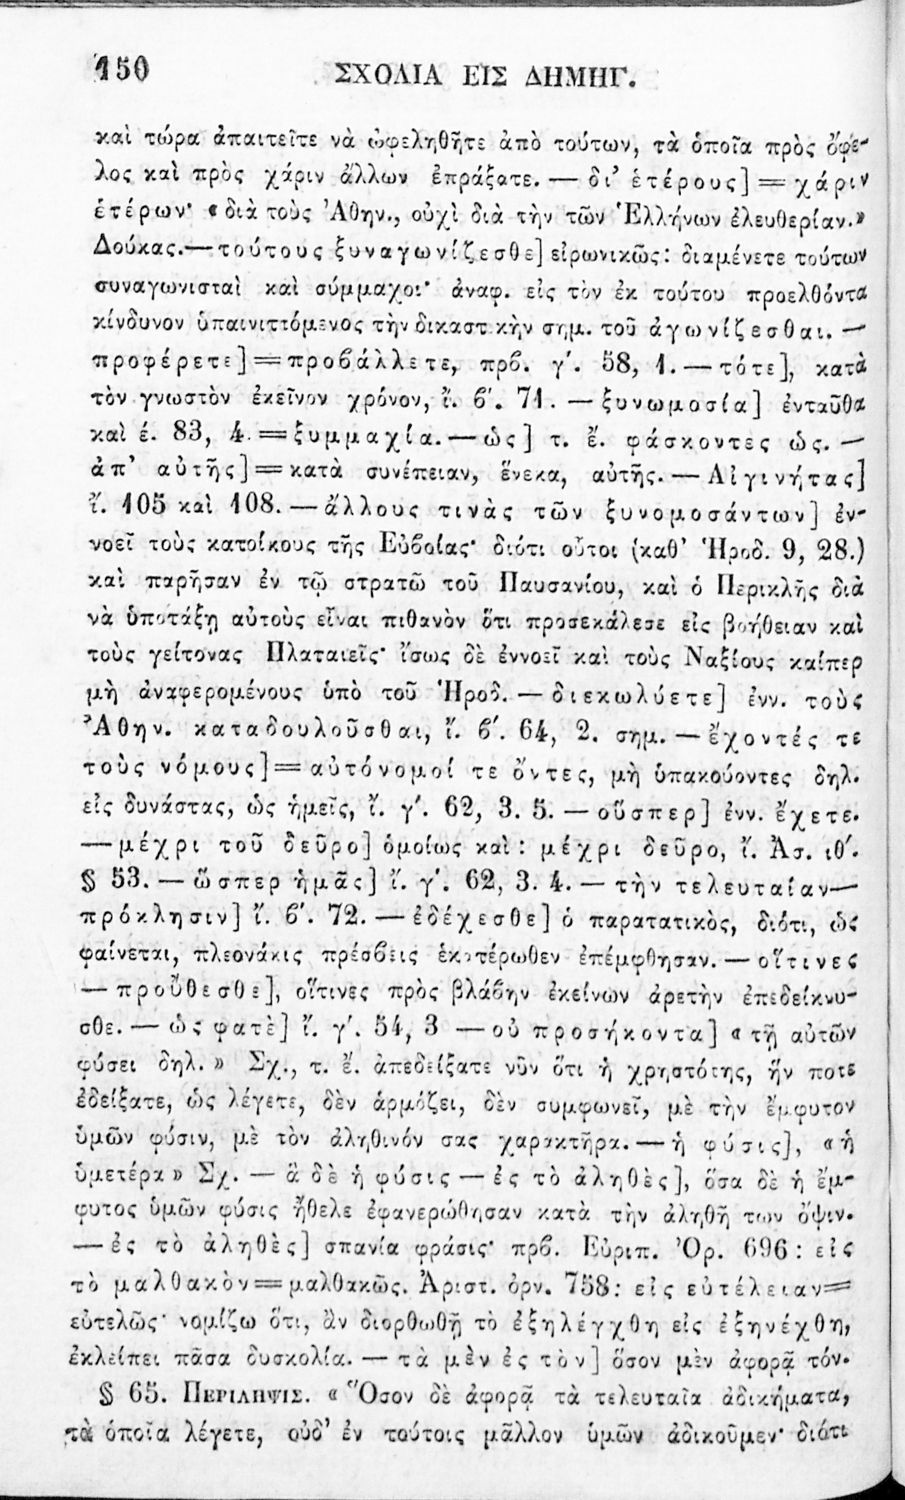 150 ΣΧΟΛΙΑ ΕΙΣ ΔΗΜΗΓ.
καὶ τώρα ἀπαιτεῖτε νὰ ὠφεληθῆτε ἀπὸ τούτων, τὰ ὁποῖα πρὸς ὄφε-
λος καὶ πρὸς χάριν ἄλλων ἐπράξατε. — δι’ ἑτέρους] = χάριν
ἑτέρων· «διὰ τοὺς Ἀθην., οὐχὶ διὰ τὴν τῶν Ἑλλήνων ἐλευθερίαν.»
Δούκας. — τούτους ξυναγωνίζεσθε] εἰρωνικῶς: διαμένετε τούτων
συναγωνισταὶ καὶ σύμμαχοι· ἀναφ. εἰς τὸν ἐκ τούτου προελθόντα
κίνδυνον ὑπαινιττόμενος τὴν δικαστικὴν σημ. τοῦ ἀγωνίζεσθαι. —
προφέρετε] = προβάλλετε, πρβ. γ′. 58, 1. — τότε], κατὰ
τὸν γνωστὸν ἐκεῖνον χρόνον, ἴ. β′. 71. — ξυνωμοσία] ἐνταῦθα
καὶ έ. 83, 4. = ξυμμαχία. — ὡς] τ. ἔ. φάσκοντες ὡς. —
ἀπ’ αὐτῆς] = κατὰ συνέπειαν, ἕνεκα, αὐτῆς. — Αἰγινήτας]
ἴ. 105 καὶ 108. — ἄλλους τινὰς τῶν ξυνομοσάντων] ἐν-
νοεῖ τοὺς κατοίκους τῆς Εὐβοίας· διότι οὗτοι (καθ’ Ἡροδ. 9, 28.)
καὶ παρῆσαν ἐν τῷ στρατῶ τοῦ Παυσανίου, καὶ ὁ Περικλῆς διὰ
νὰ ὑποτάξῃ αὐτοὺς εἶναι πιθανὸν ὅτι προσεκάλεσε εἰς βοήθειαν καὶ
τοὺς γείτονας Πλαταιεῖς· ἴσως δὲ ἐννοεῖ καὶ τοὺς Ναξίους καίπερ
μὴ ἀναφερομένους ὑπὸ τοῦ Ἡροδ. — διεκωλύετε] ἐνν. τοὺς
Ἀθην. καταδουλοῦσθαι, ἴ. β′. 64, 2. σημ. — ἔχοντές τε
τοὺς νόμους] = αὐτόνομοί τε ὄντες, μὴ ὑπακούοντες δηλ.
εἰς δυνάστας, ὡς ἡμεῖς, ἴ. γ′. 62, 3. 5. — οὕσπερ] ἐνν. ἔχετε.
— μέχρι τοῦ δεῦρο] ὁμοίως καὶ: μέχρι δεῦρο, ἴ. Ἀσ. ιθ′.
§ 53. — ὥσπερ ἡμᾶς] ἴ. γ′. 62, 3. 4. — τὴν τελευταίαν —
πρόκλησιν] ἴ. β′. 72. — ἐδέχεσθε] ὁ παρατατικὸς, διότι, ὡς
φαίνεται, πλεονάκις πρέσβεις ἑκατέρωθεν ἐπέμφθησαν. — οἵτινες
— προὔθεσθε], οἵτινες πρὸς βλάβην ἐκείνων ἀρετὴν ἐπεδείκνυ-
σθε. — ὡς φατὲ] ἴ. γ′. 54, 3 — οὐ προσήκοντα] «τῇ αὐτῶν
φύσει δηλ.» Σχ., τ. ἔ. ἀπεδείξατε νῦν ὅτι ἡ χρηστότης, ἥν ποτε
ἐδείξατε, ὡς λέγετε, δὲν ἁρμόζει, δὲν συμφωνεῖ, μὲ τὴν ἔμφυτον
ὑμῶν φύσιν, μὲ τὸν ἀληθινόν σας χαρακτῆρα. — ἡ φύσις], «ἡ
ὑμετέρα» Σχ. — ἃ δὲ ἡ φύσις — ἐς τὸ ἀληθὲς], ὅσα δὲ ἡ ἔμ-
φυτος ὑμῶν φύσις ἤθελε ἐφανερώθησαν κατὰ τὴν ἀληθῆ των ὄψιν.
— ἐς τὸ ἀληθὲς] σπανία φράσις· πρβ. Εὐριπ. Ὀρ. 696: εἰς
τὸ μαλθακὸν = μαλθακῶς. Ἀριστ. ὀρν. 758: εἰς εὐτέλειαν =
εὐτελῶς· νομίζω ὅτι, ἂν διορθωθῇ τὸ ἐξηλέγχθη εἰς ἐξηνέχθη,
ἐκλείπει πᾶσα δυσκολία. — τὰ μὲν ἐς τὸν] ὅσον μὲν ἀφορᾷ τόν.
§ 65. ΠΕΡΙΛΗΨΙΣ. «Ὅσον δὲ ἀφορᾷ τὰ τελευταῖα ἀδικήματα,
τὰ ὁποῖα λέγετε, οὐδ’ ἐν τούτοις μᾶλλον ὑμῶν ἀδικοῦμεν· διότι